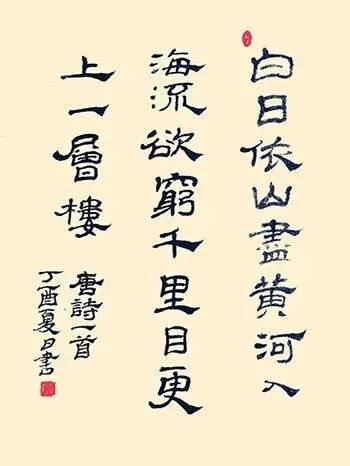 白日依山盡黄河入
海流欲窮千里目更
上一層樓
唐詩一首
丁酉夏日書